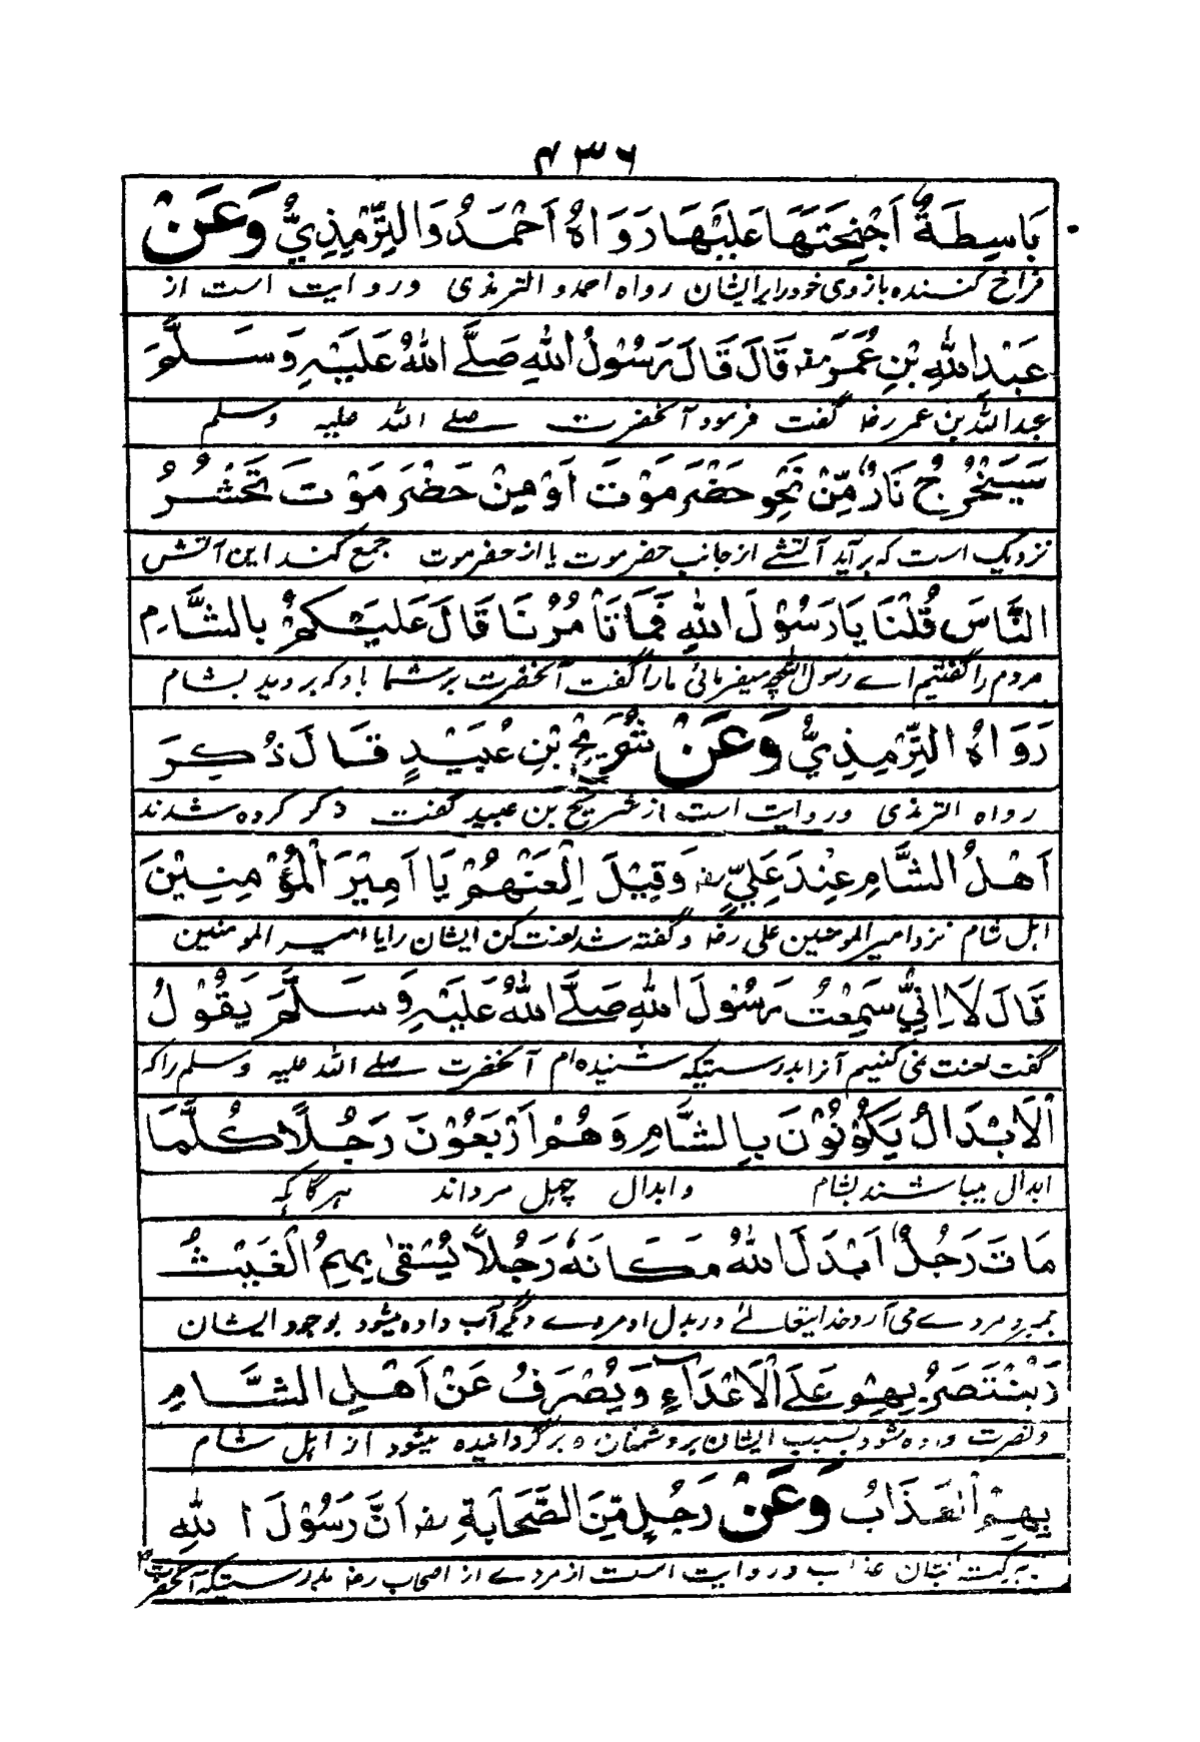 ۴۳۶
بَاسِطَةٌ اَجْنِحَتَهَا عَلَيْهَا رَوَاهُ اَحْمَدُ وَالتِّرْمِذِيُّ وَعَنْ
فراخ کننده بازوی خود را بر ایشان رواه احمد و الترمذی و روایت است از
عَبْدِ اللهِ بْنِ عُمَرَ رض قَالَ قَالَ رَسُوْلُ اللهِ صَلَّے اللهُ عَلَيْهِ وَسَلَّمَ
عبد الله بن عمر رض گفت فرمود آنحضرت صلے الله علیه وسلم
سَيَخْرُجُ نَارٌ مِّنْ نَحْوِ حَضْرَمَوْتَ اَوْ مِنْ حَضْرَمَوْتَ تَحْشُرُ
نزدیک است که برآید آتشے از جانب حضرموت یا از حضرموت جمع کند این آتش
النَّاسَ قُلْنَا يَا رَسُوْلَ اللهِ فَمَا تَاْمُرُنَا قَالَ عَلَيْكُمْ بِالشَّامِ
مردم را گفتیم اے رسول الله چه میفرمائی ما را گفت آنحضرت بر شما باد که بروید بشام
رَوَاهُ التِّرْمِذِيُّ وَعَنْ شُرَيْحِ بْنِ عُبَيْدٍ قَالَ ذُكِرَ
رواه الترمذی و روایت است از شریح بن عبید گفت ذکر کرده شدند
اَهْلُ الشَّامِ عِنْدَ عَلِيٍّ رض وَقِيْلَ الْعَنْهُمْ يَا اَمِيْرَ الْمُؤْمِنِيْنَ
اهل شام نزد امیر المومنین علی رض و گفته شد لعنت کن ایشان را یا امیر المومنین
قَالَ لَا اِنِّيْ سَمِعْتُ رَسُوْلَ اللهِ صَلَّے اللهُ عَلَيْهِ وَسَلَّمَ يَقُوْلُ
گفت لعنت نمی کنیم آنرا بدرستیکه شنیده ام آنحضرت صلے الله علیه وسلم را که
اَلْاَبْدَالُ يَكُوْنُوْنَ بِالشَّامِ وَهُمْ اَرْبَعُوْنَ رَجُلًا كُلَّمَا
ابدال میباشند بشام و ابدال چهل مرد اند هرگاه که
مَاتَ رَجُلٌ اَبْدَلَ اللهُ مَكَانَهٗ رَجُلًا يُسْقٰى بِهِمُ الْغَيْثُ
بمیرد مردے می آرد خدایتعالے در بدل او مردے دیگر آب داده میشود بوجود ایشان
وَيُنْتَصَرُ بِهِمْ عَلَے الْاَعْدَاءِ وَيُصْرَفُ عَنْ اَهْلِ الشَّامِ
و نصرت داده شود بسبب ایشان بر دشمنان و برگردانیده میشود از اهل شام
بِهِمُ الْعَذَابُ وَعَنْ رَجُلٍ مِّنَ الصَّحَابَةِ رض اَنَّ رَسُوْلَ اللهِ
ببرکت ایشان عذاب و روایت است از مردے از اصحاب رض بدرستیکه آنحضرت